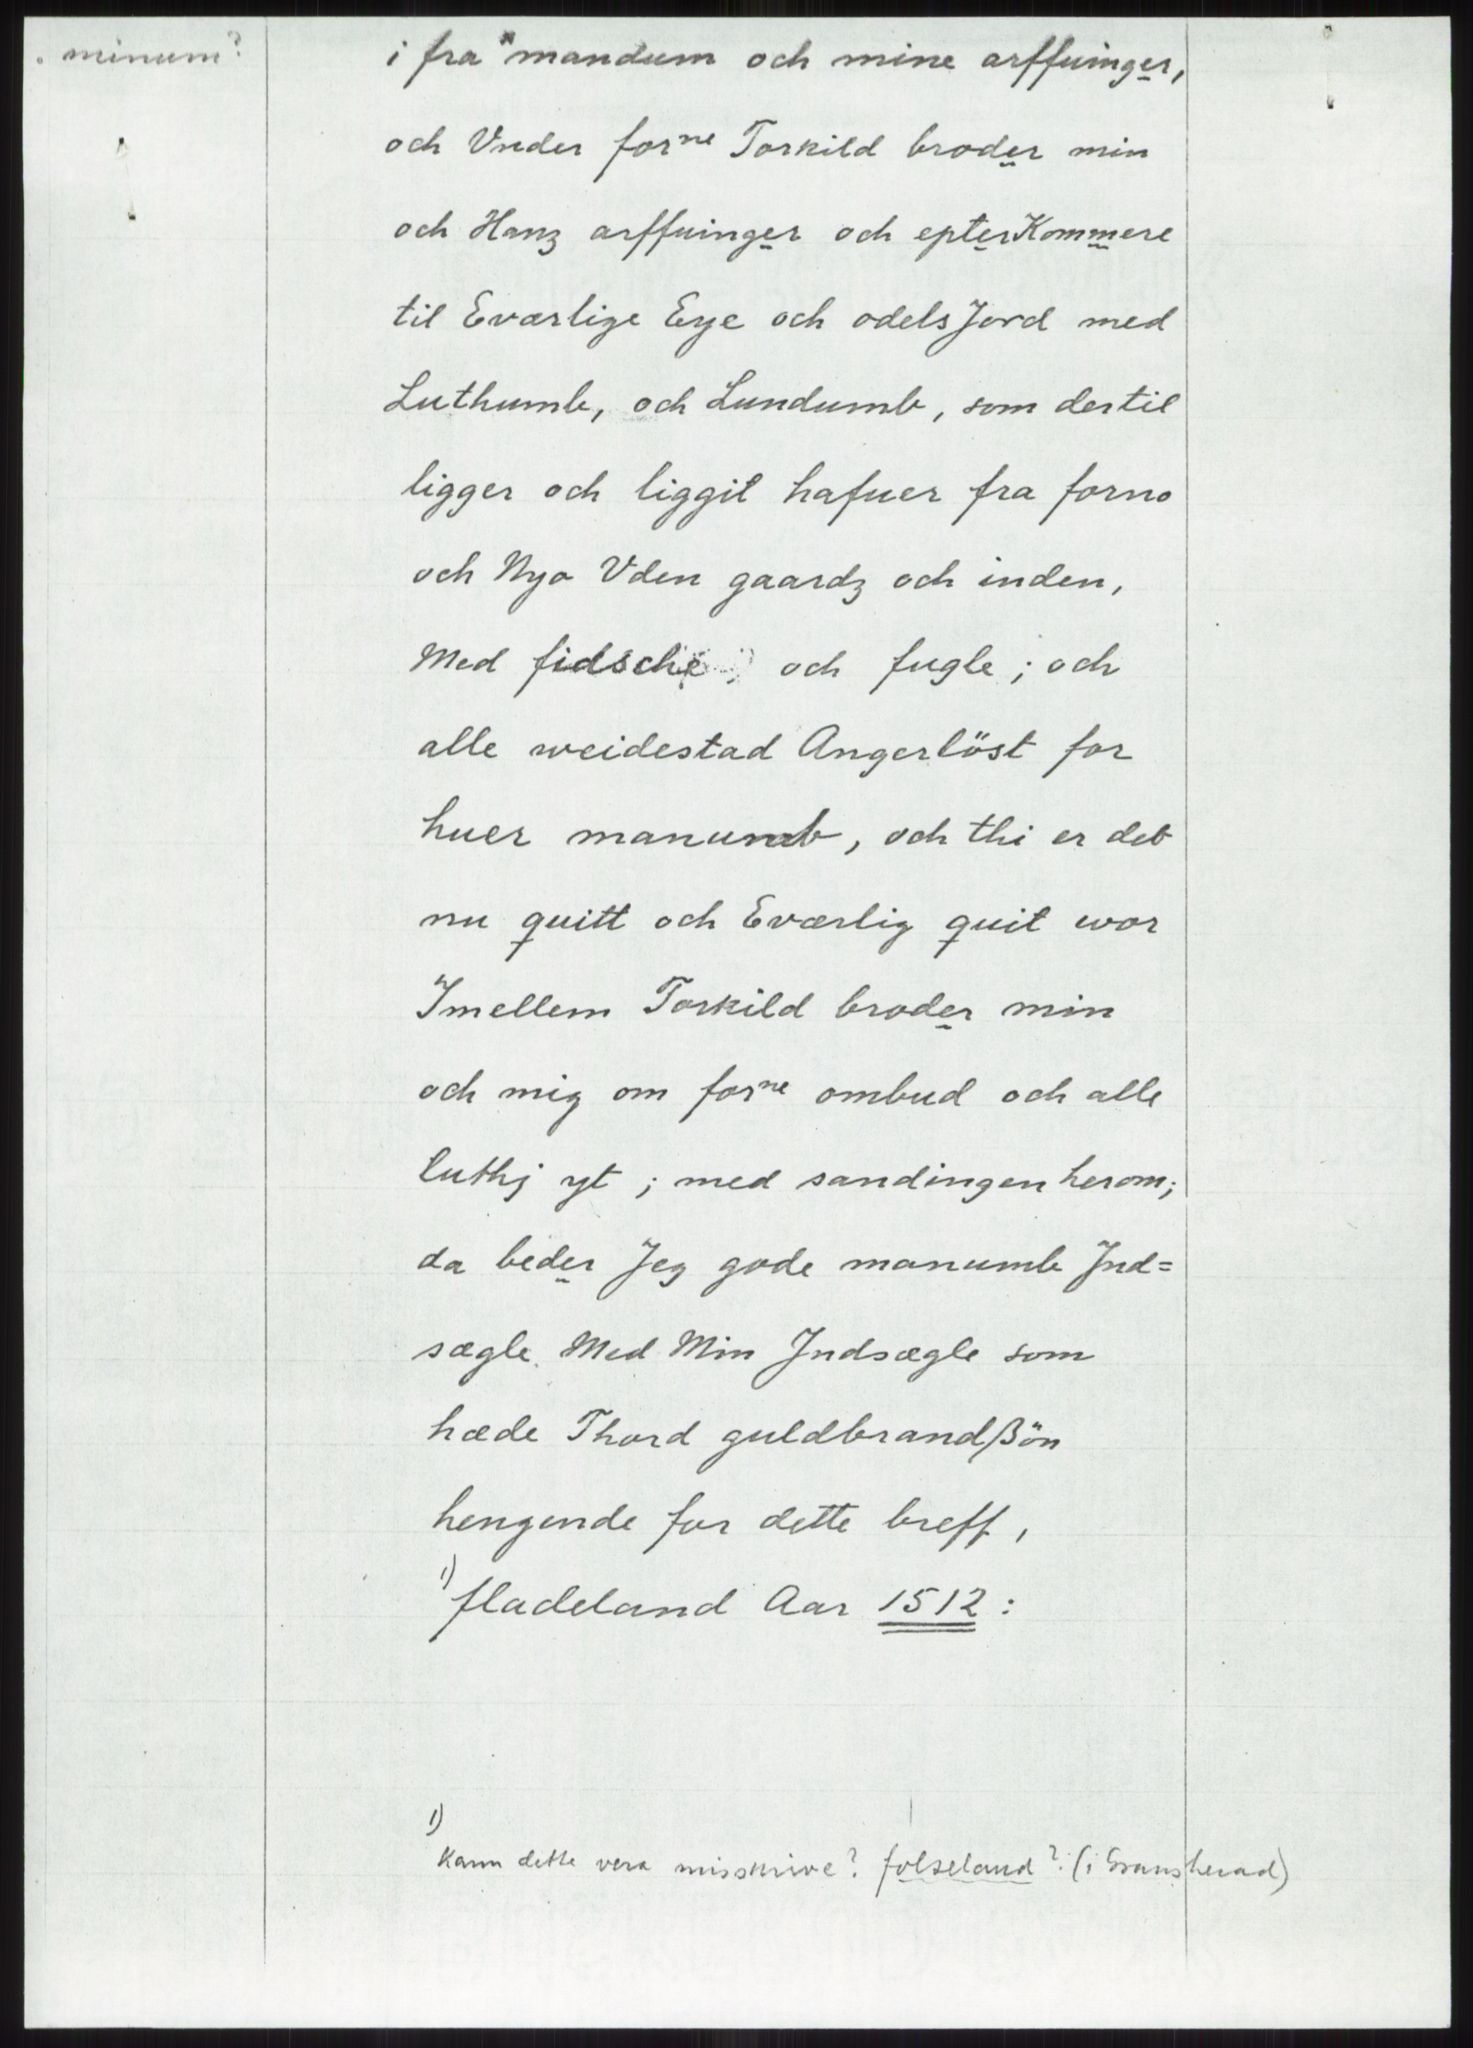 . minum?
i fra * mandum och mine arffuinger,
och Vnder forne Torkild broder min
och Hanz arffuinger och epterKommere
til Eværlige Eye och odels Jord med
Luthumb, och Lundumb, som dertil
ligger och liggit hafuer fra forno
och Nyo Vden gaardz och inden,
Med fidsche och fugle; och
alle weidestad Angerlöst for
huer manumb, och thi er det
nu quitt och Eværlig quit wor
Imellem Torkild broder min
och mig om forne ombud och alle
luthj yt ; med sandingen herom;
da beder Jeg gode manumb Ind=
sægle Med Min Indsægle som
hæde Thord guldbrandßön
hengende for dette breff,
1) fladeland Aar 1512 :
1)
Kann dette vera misskrive? folseland? (i Gransherad)